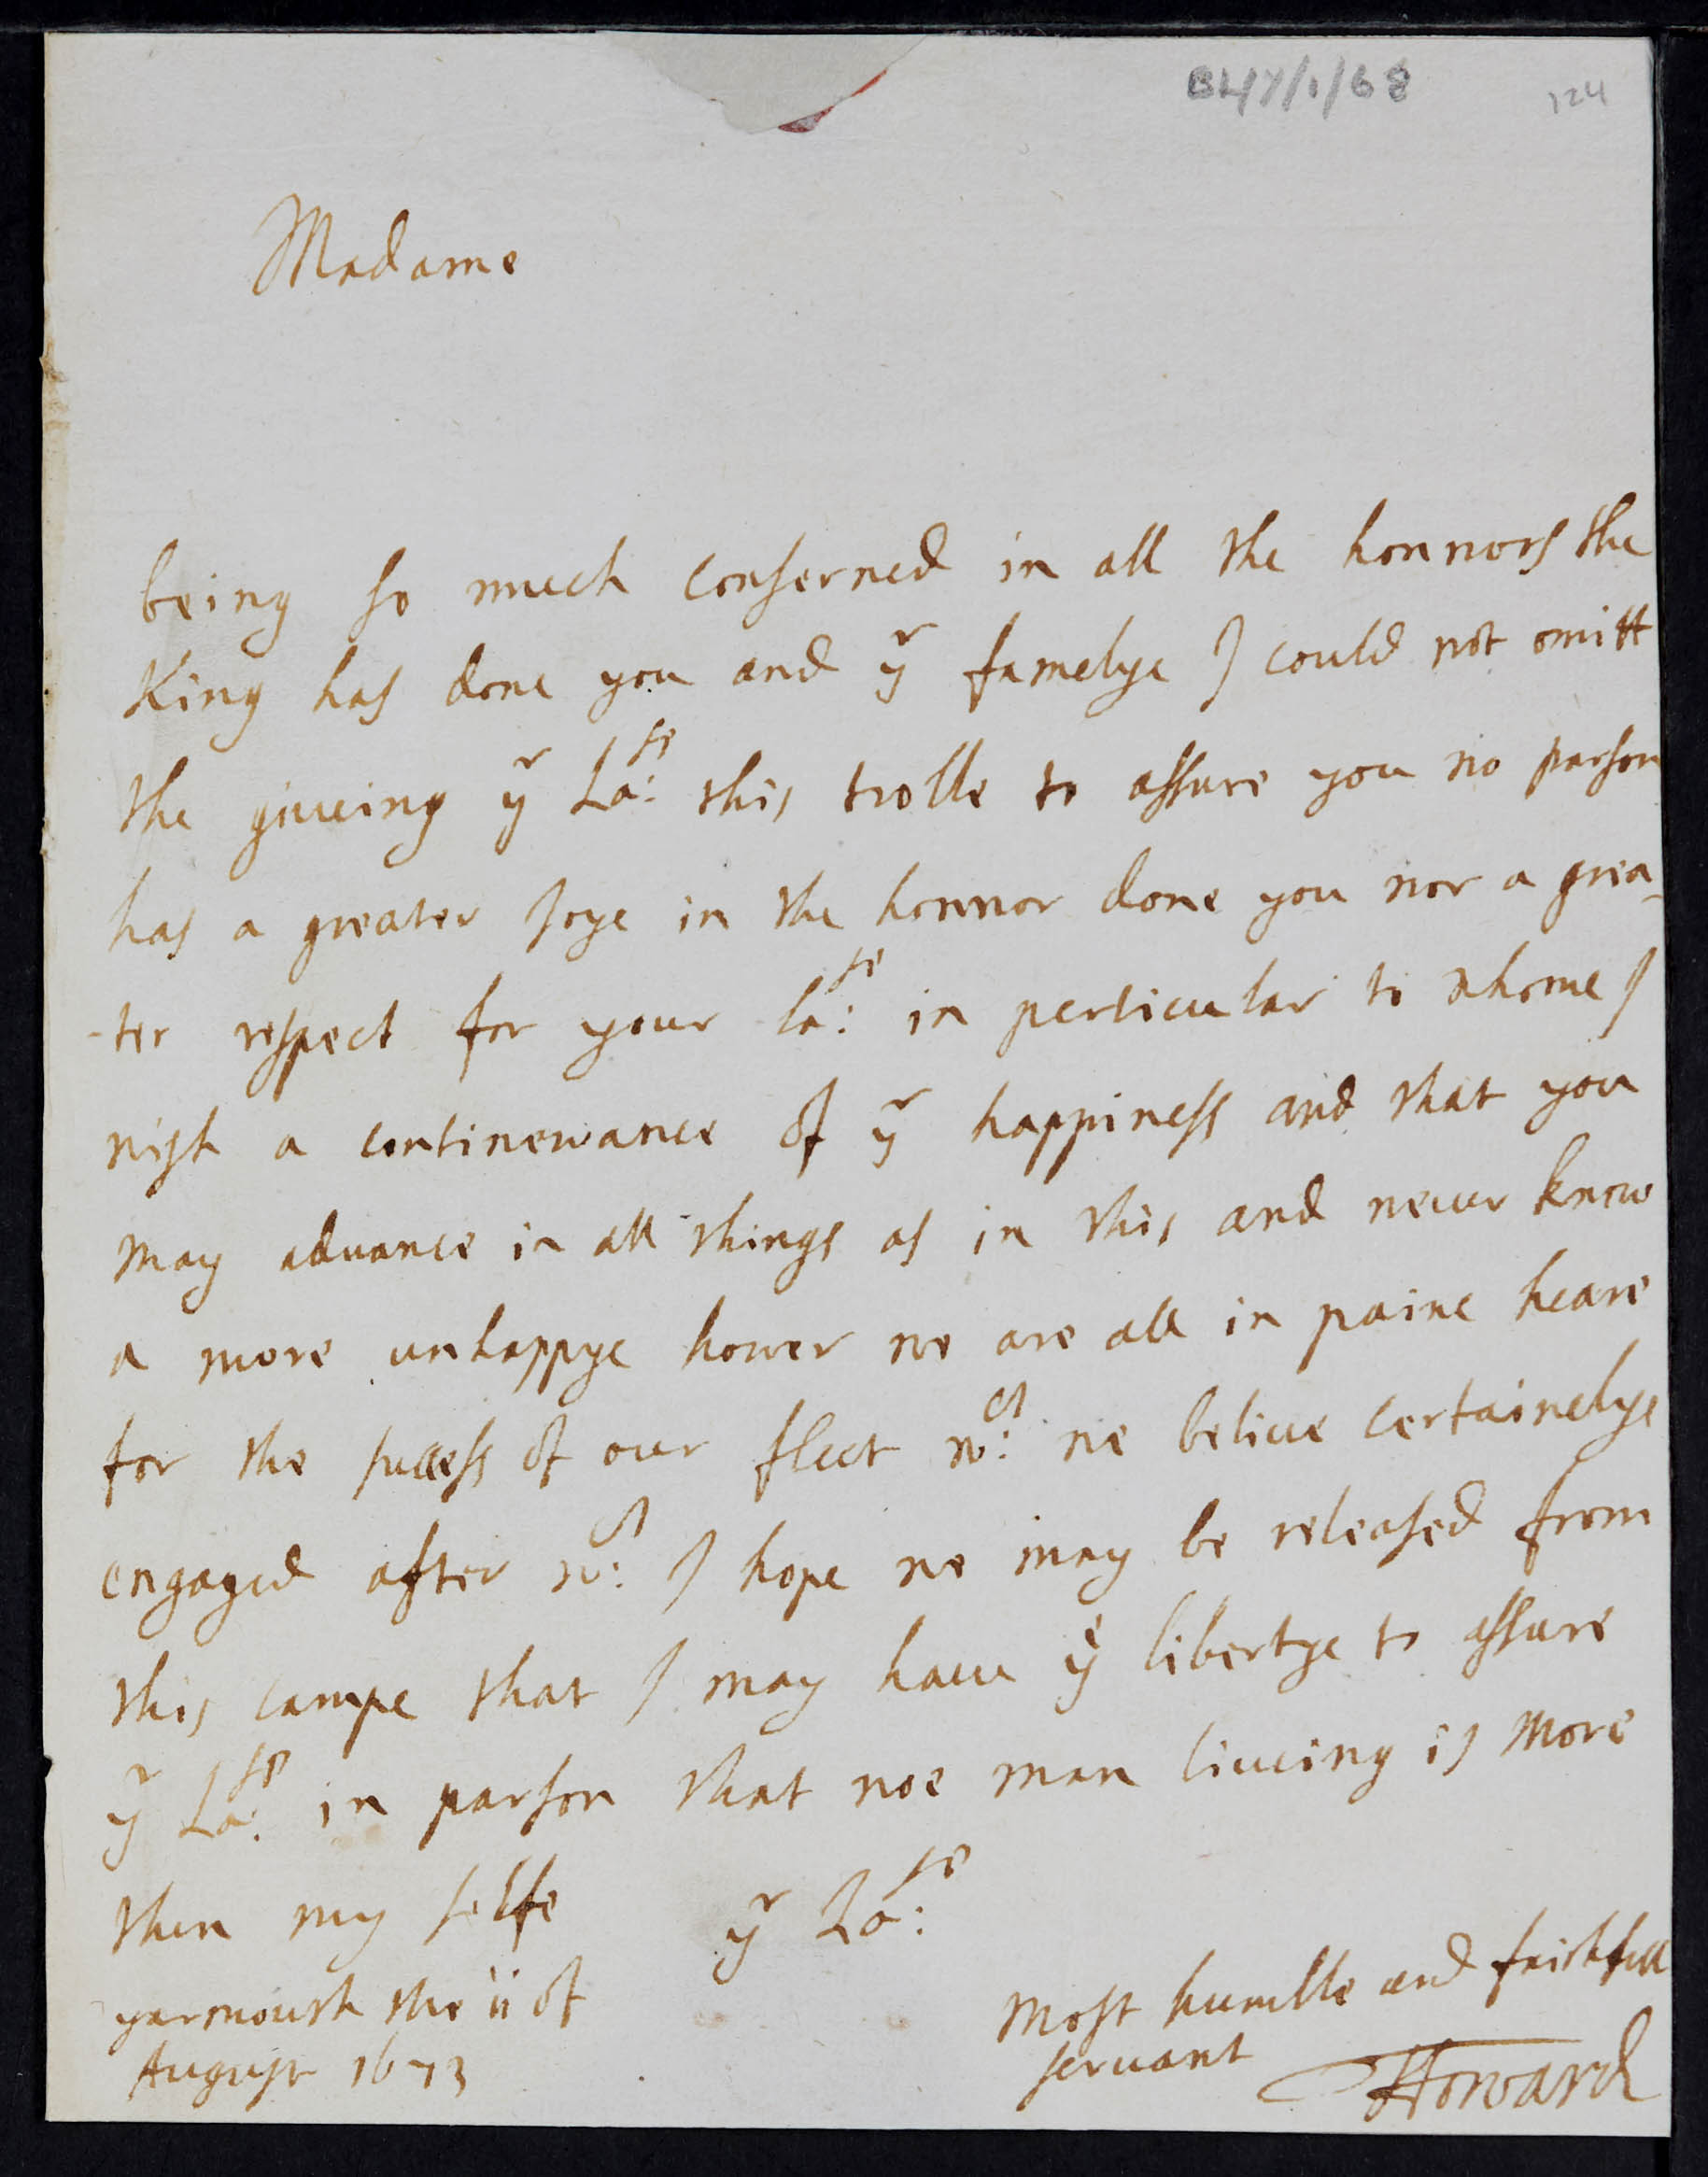 BLY/1/68
124
Madame
being so much conserned in all the honnors the
King has done you and yr famelye I could not omitt
the giueing yr La:sp this trolle to assure you no parson
has a greater Joye in the honnor done you nor a grea-
-ter respect for your la:sp in perticular to whome I
wish a continewance of yr happiness and that you
may aduance in all things as in this and neuer know
a more unhappye hower we are all in paine heare
for the sucess of our fleet w:ch we belieue certainelye
engaged after w:ch I hope we may be released from
this campe that I may haue ye libertye to assure
yr La:sp in parson that noe man liueing is more
then my selfe yr La:sp
most humble and faithfull
seruant
Howard
yarmouth the ii of
August 1673